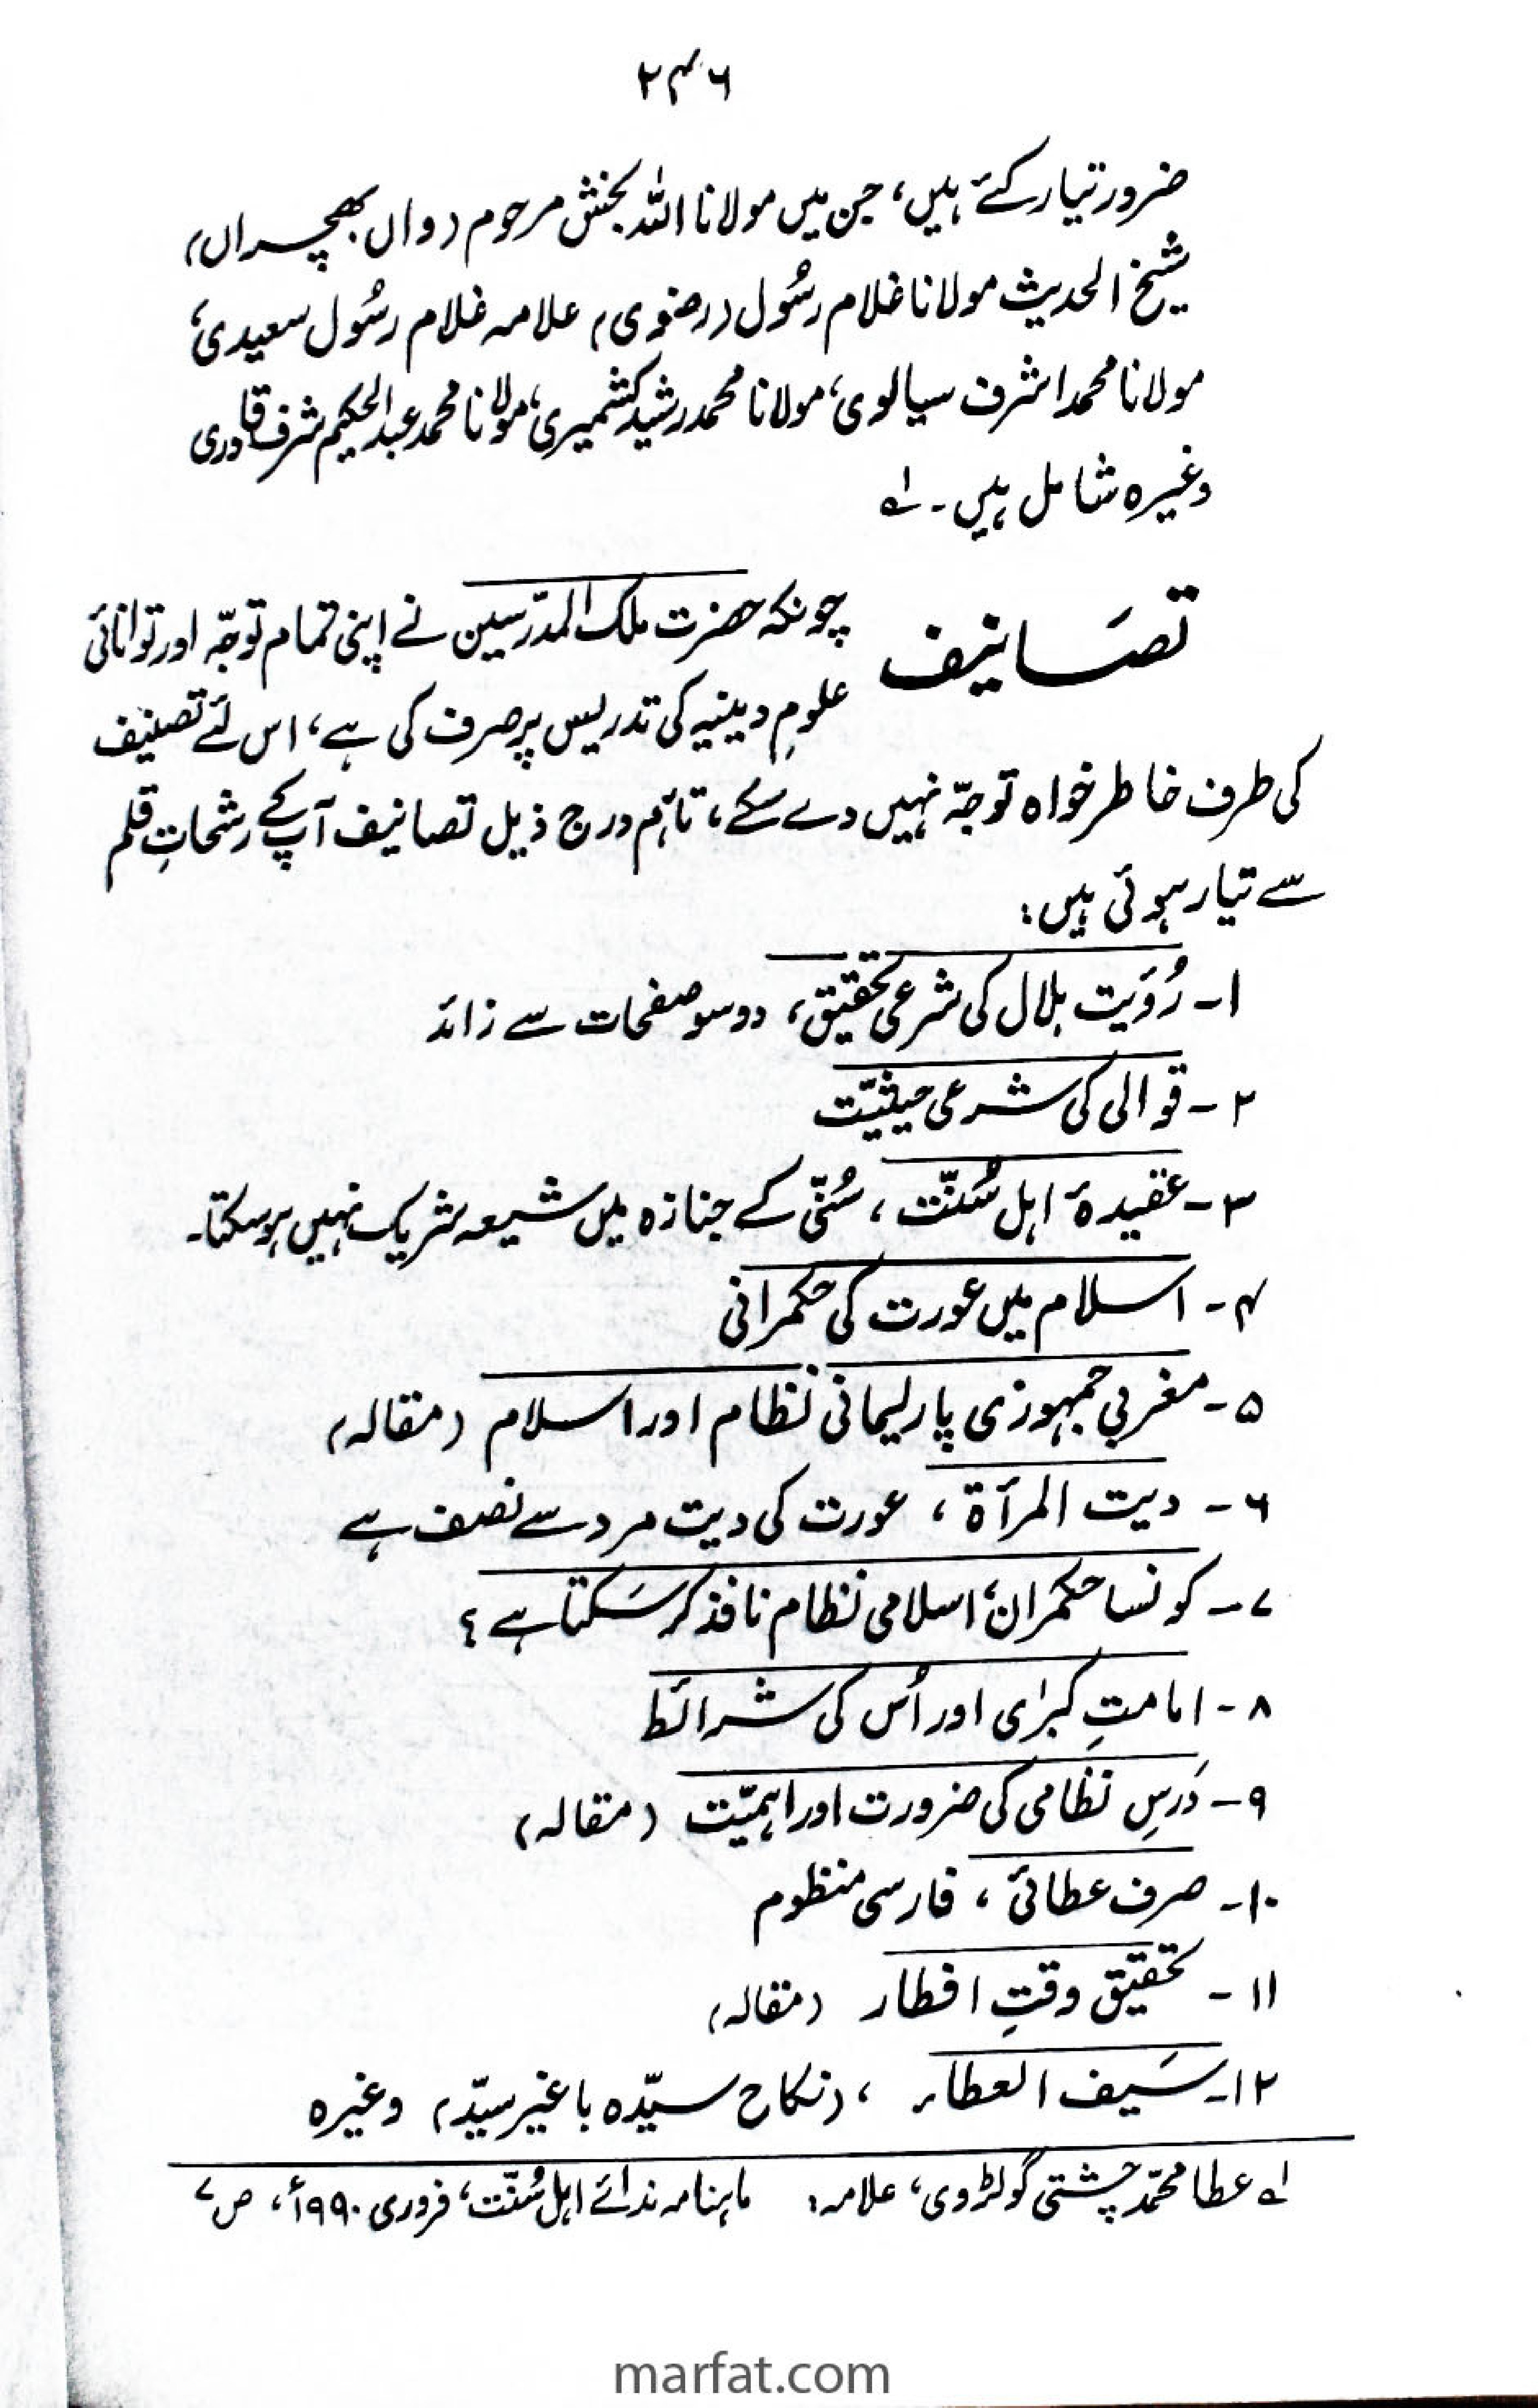 ۲۴۶
ضرور تیار کئے ہیں، جن میں مولانا اللہ بخش مرحوم (واں بھچراں)
شیخ الحدیث مولانا غلام رسُول (رضوی) علامہ غلام رسُول سعیدی،
مولانا محمد اشرف سیالوی، مولانا محمد رشید کشمیری، مولانا محمد عبدالحکیم شرف قادری
وغیرہ شامل ہیں۔ لہ
تصَانیف
چونکہ حضرت ملک المدرّسین نے اپنی تمام توجّہ اور توانائی
علومِ دینیہ کی تدریس پر صرف کی ہے، اس لئے تصنیف
کی طرف خاطر خواہ توجّہ نہیں دے سکے، تاہم درج ذیل تصانیف آپ کے رشحاتِ قلم
سے تیار ہوئی ہیں:
۱۔ رُؤیت ہلال کی شرعی تحقیق، دو سو صفحات سے زائد
۲۔ قوالی کی شرعی حیثیّت
۳۔ عقیدۂ اہل سُنّت، سُنّی کے جنازہ میں شیعہ شریک نہیں ہو سکتا۔
۴۔ اسلام میں عورت کی حکمرانی
۵۔ مغربی جمہوری پارلیمانی نظام اور اسلام (مقالہ)
۶۔ دیت المرأۃ، عورت کی دیت مرد سے نصف ہے
۷۔ کونسا حکمران، اسلامی نظام نافذ کر سَکتا ہے؟
۸۔ امامتِ کبرٰی اور اُس کی شرائط
۹۔ دَرسِ نظامی کی ضرورت اور اہمیّت (مقالہ)
۱۰۔ صرف عطائی، فارسی منظوم
۱۱۔ تحقیق وقتِ افطار (مقالہ)
۱۲۔ سَیف العطاء، (نکاح سیّدہ با غیر سیّد) وغیرہ
لہ عطا محمّد چشتی گولڑوی، علامہ: ماہنامہ ندائے اہل سُنّت، فروری ۱۹۹۰ء، ص ۷
marfat.com